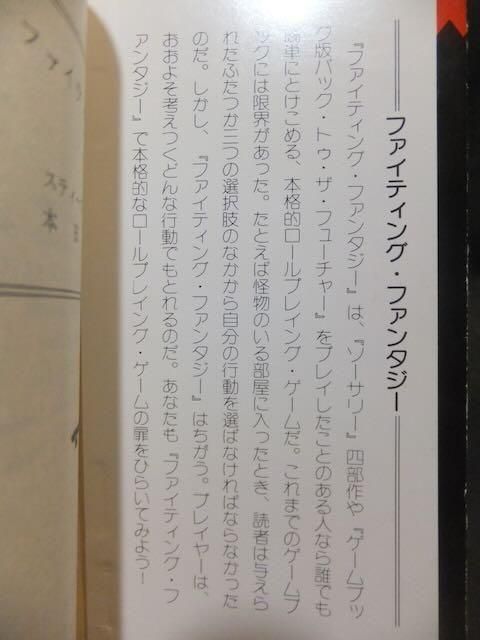 ファイティング・ファンタジー
『ファイティング・ファンタジー』は、『ソーサリー』四部作や『ゲームブッ
ク版バック・トゥ・ザ・フューチャー』をプレイしたことのある人なら誰でも
簡単にとけこめる、本格的ロールプレイング・ゲームだ。これまでのゲームブ
ックには限界があった。たとえば怪物のいる部屋に入ったとき、読者は与えら
れたふたつか三つの選択肢のなかから自分の行動を選ばなければならなかった
のだ。しかし、『ファイティング・ファンタジー』はちがう。プレイヤーは、
おおよそ考えつくどんな行動でもとれるのだ。あなたも『ファイティング・フ
ァンタジー』で本格的なロールプレイング・ゲームの扉をひらいてみよう！
ファイ
スティー
本